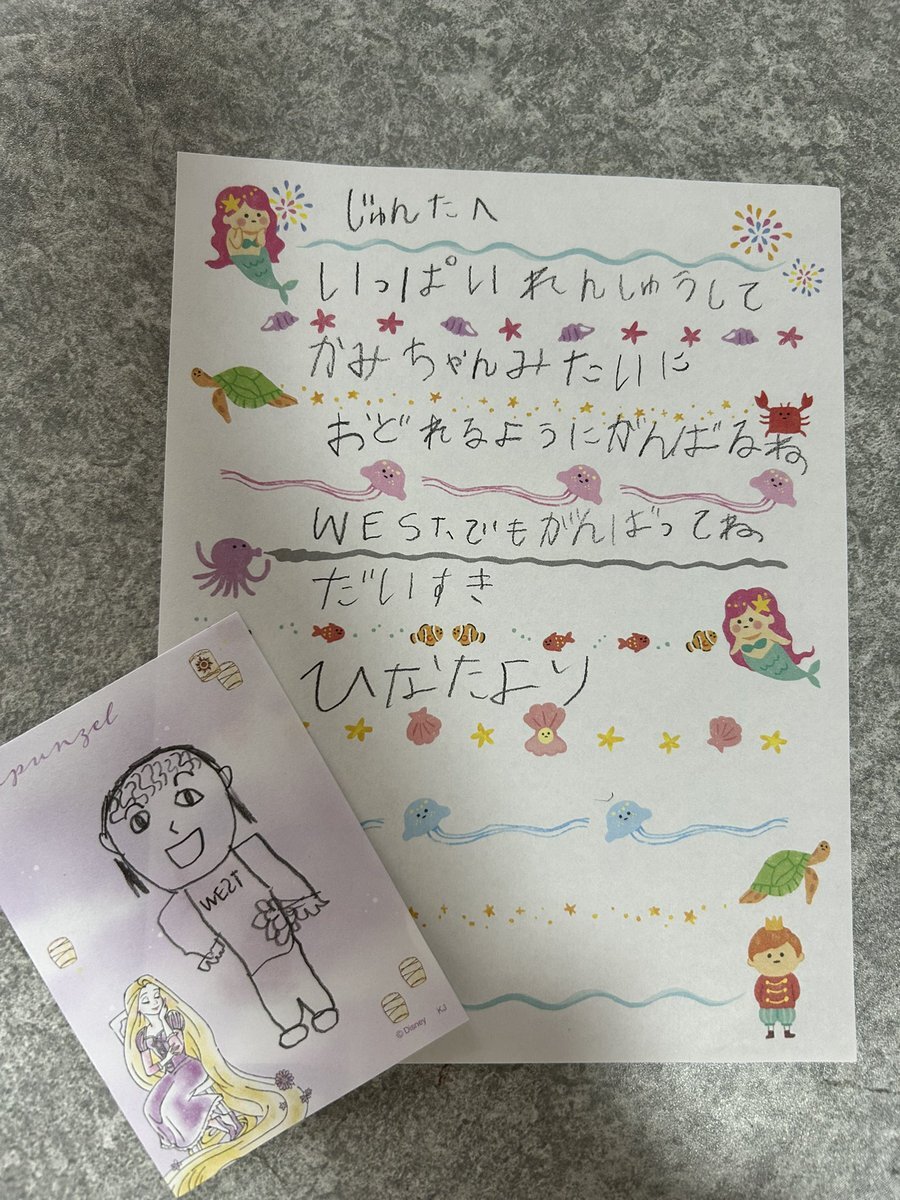 じゅんたへ
いっぱいれんしゅうして
かみちゃんみたいに
おどれるようにがんばるね。
WEST.でもがんばってね。
だいすき
ひなたより
punzel
WEST
© Disney KJ